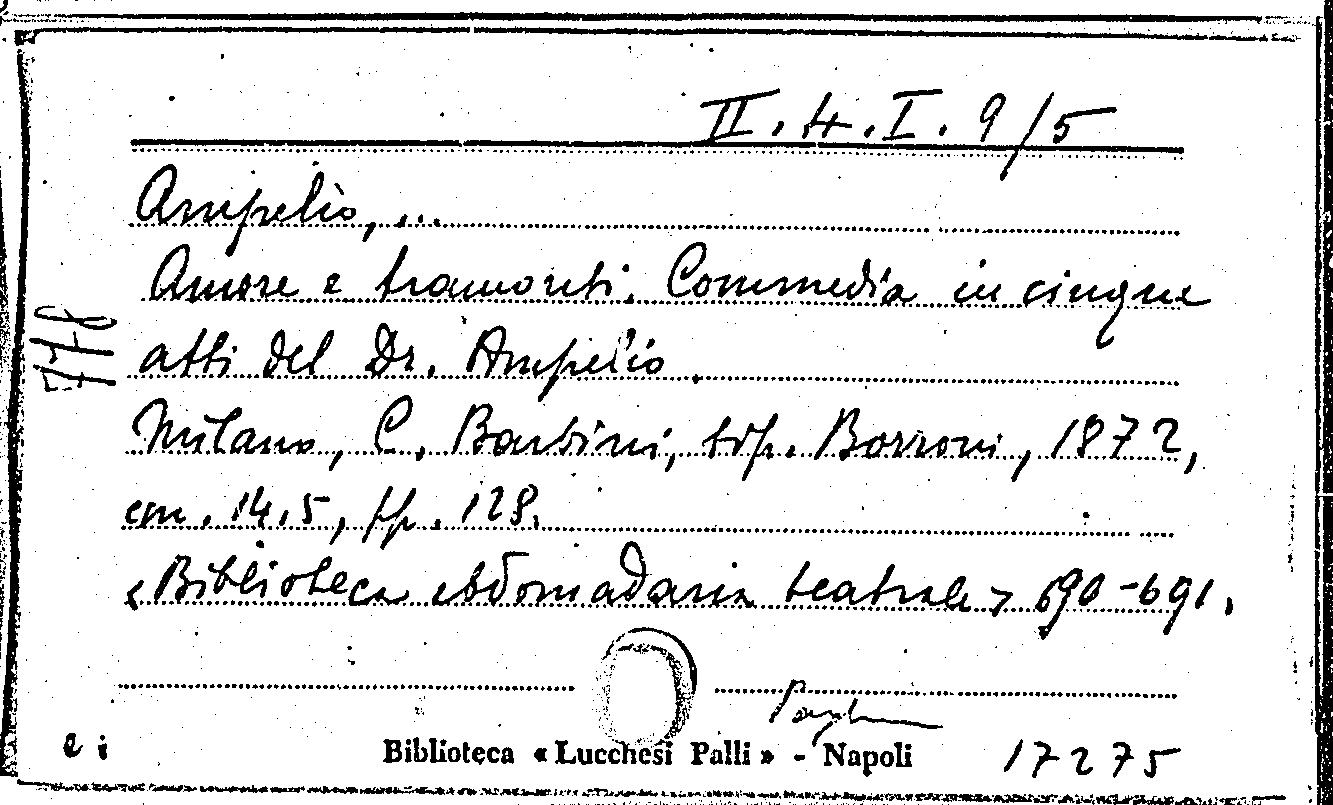 II.4.I.9/5
Ampelio, ...
Amore e tramonti. Commedia in cinque
778
atti del Dr. Ampelio.
Milano, C. Barbini, tip. Borroni, 1872,
cm. 14.5, pp. 128.
«Biblioteca ebdomadaria teatrale» 690-691.
e i
Biblioteca « Lucchesi Palli » - Napoli
17275